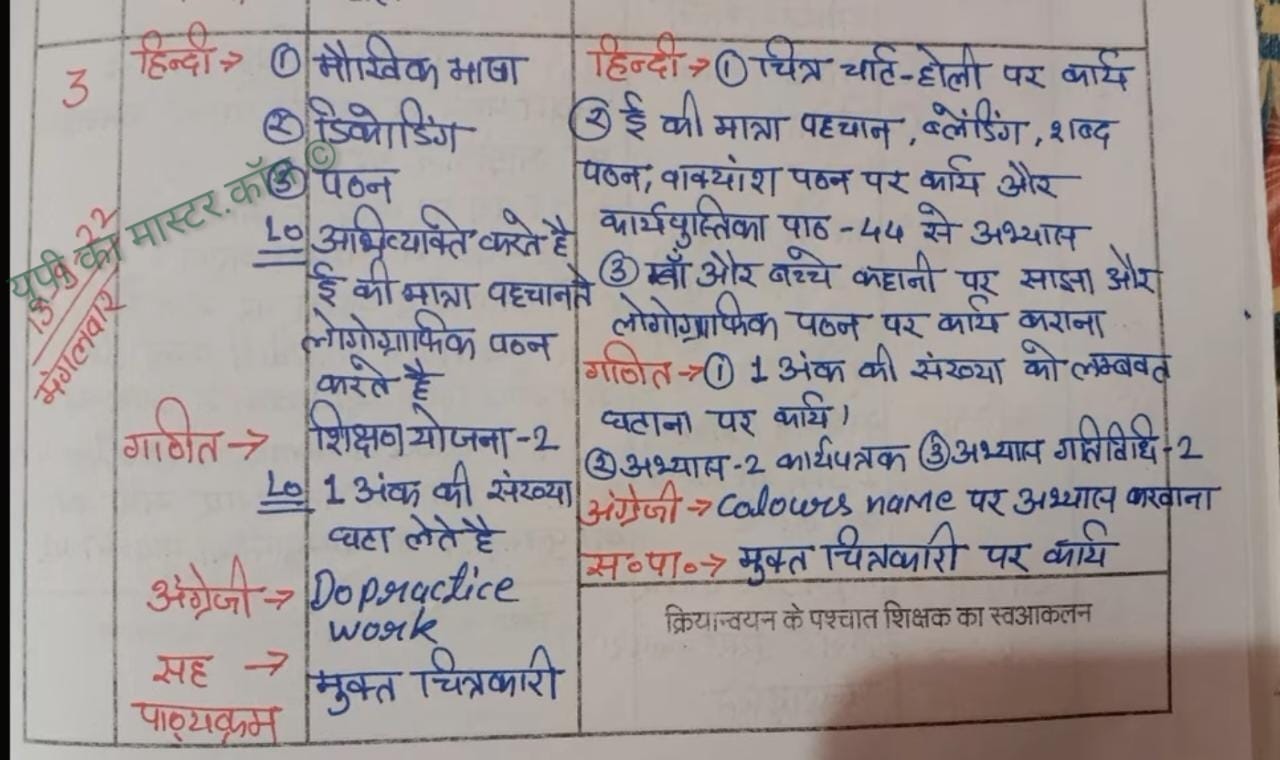 3
13-9-22
मंगलवार
यूपी का मास्टर.कॉम ©
हिन्दी → ① मौखिक भाषा
② डिकोडिंग
③ पठन
LO अभिव्यक्ति करते है
ई की मात्रा पहचानते
लोगोग्राफिक पठन
करते है
गणित → शिक्षण योजना-2
LO 1 अंक की संख्या
घटा लेते है
अंग्रेजी → Do practice
work
सह → मुक्त चित्रकारी
पाठ्यक्रम
हिन्दी → ① चित्र चार्ट-होली पर कार्य
② ई की मात्रा पहचान, ब्लेंडिंग, शब्द
पठन, वाक्यांश पठन पर कार्य और
कार्यपुस्तिका पाठ -44 से अभ्यास
③ और बच्चे कहानी पर साझा और
लोगोग्राफिक पठन पर कार्य कराना
गणित → ① 1 अंक की संख्या को लम्बवत
घटाना पर कार्य।
② अभ्यास-2 कार्यपत्रक ③ अभ्यास गतिविधि-2
अंग्रेजी → colours name पर अभ्यास करवाना
स०पा०→ मुक्त चित्रकारी पर कार्य
क्रियान्वयन के पश्चात शिक्षक का स्वआकलन